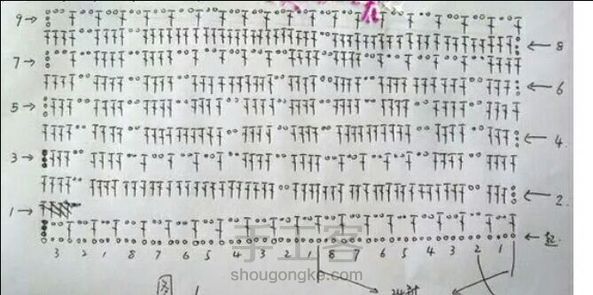 9 →
← 8
7 →
← 6
5 →
← 4.
3 →
← 2.
1 →
← 起
3 2 1 8 7 6 5 4 3 2 1 8 7 6 5 4 3 2 1
手工客
shougongke.com
图 1
24针